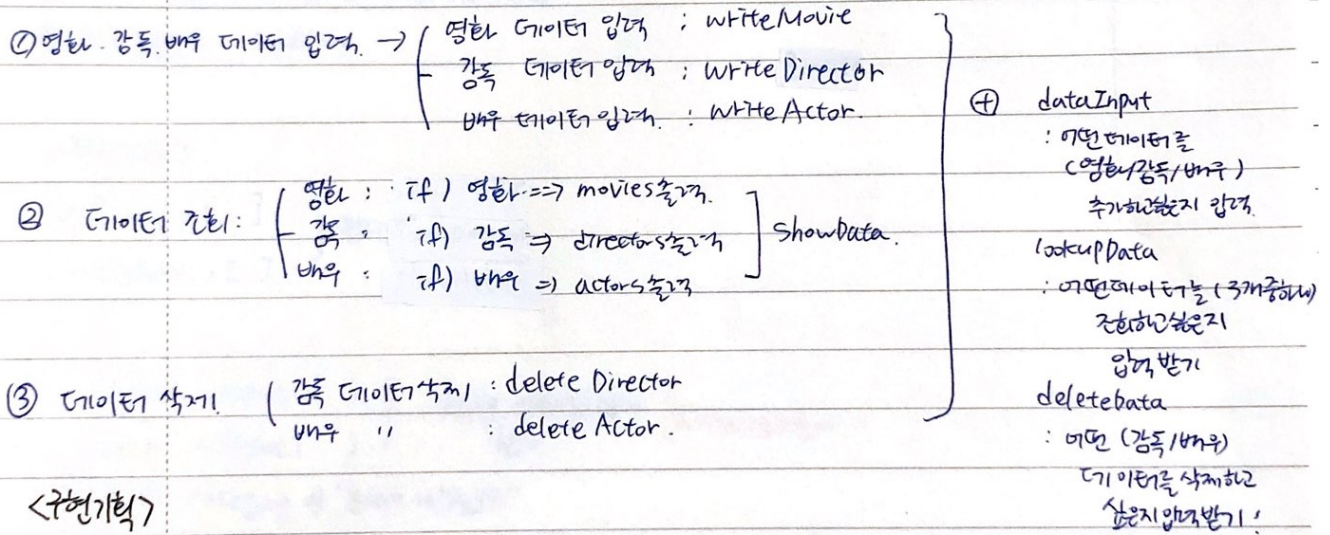 ① 영화·감독·배우 데이터 입력 →
영화 데이터 입력 : writeMovie
감독 데이터 입력 : writeDirector
배우 데이터 입력. : writeActor.
② 데이터 조회:
영화 : if) 영화 ==> movies출력.
감독 : if) 감독 => directors출력
배우 : if) 배우 => actors출력
showData.
③ 데이터 삭제
감독 데이터 삭제 : delete Director
배우 〃 delete Actor.
<구현기획>
⊕ dataInput
: 어떤 데이터를
(영화/감독/배우)
추가하고싶은지 입력.
lookupData
: 어떤데이터를 (3개중하나)
조회하고싶은지
입력 받기
deleteData
: 어떤 (감독/배우)
데이터를 삭제하고
싶은지입력받기!